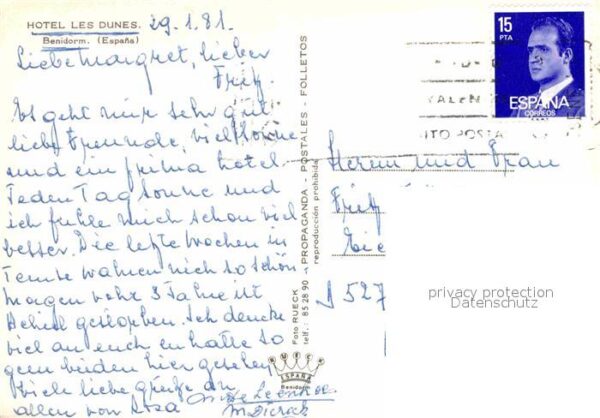 HOTEL LES DUNES. 29.1.81.
Benidorm. (España)
Liebe Margret, lieber
Fritz.
Es geht mir sehr gut
liebe Freunde, viel
und ein prima hotel.
Jeden Tag sonne und
ich fuhle mich schon viel
besser. Die letzte wochen in
waren nich so schön
Morgen vohr 3 Jahre ist
gestorben. Ich denke
viel an euch en hatte so
geen beiden hier gesehen
Viele liebe grüße an
allen von Rosa
Foto RUECK
telf.: 85 28 90 - PROPAGANDA - POSTALES - FOLLETOS
reproducción prohibida
RUECK
ESPAÑA
Benidorm
15
PTA
ESPAÑA
CORREOS
Herrn und Frau
Fritz
527
privacy protection
Datenschutz